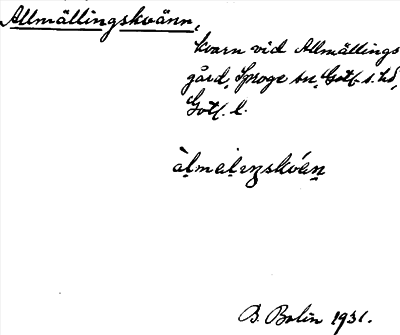 Allmällingskvänn,
kvarn vid Allmällings
gård, Sproge sn, Gotl. s. hd,
Gotl. l.
àl̯mal̯ıŋskván̯
B. Bolin 1931.